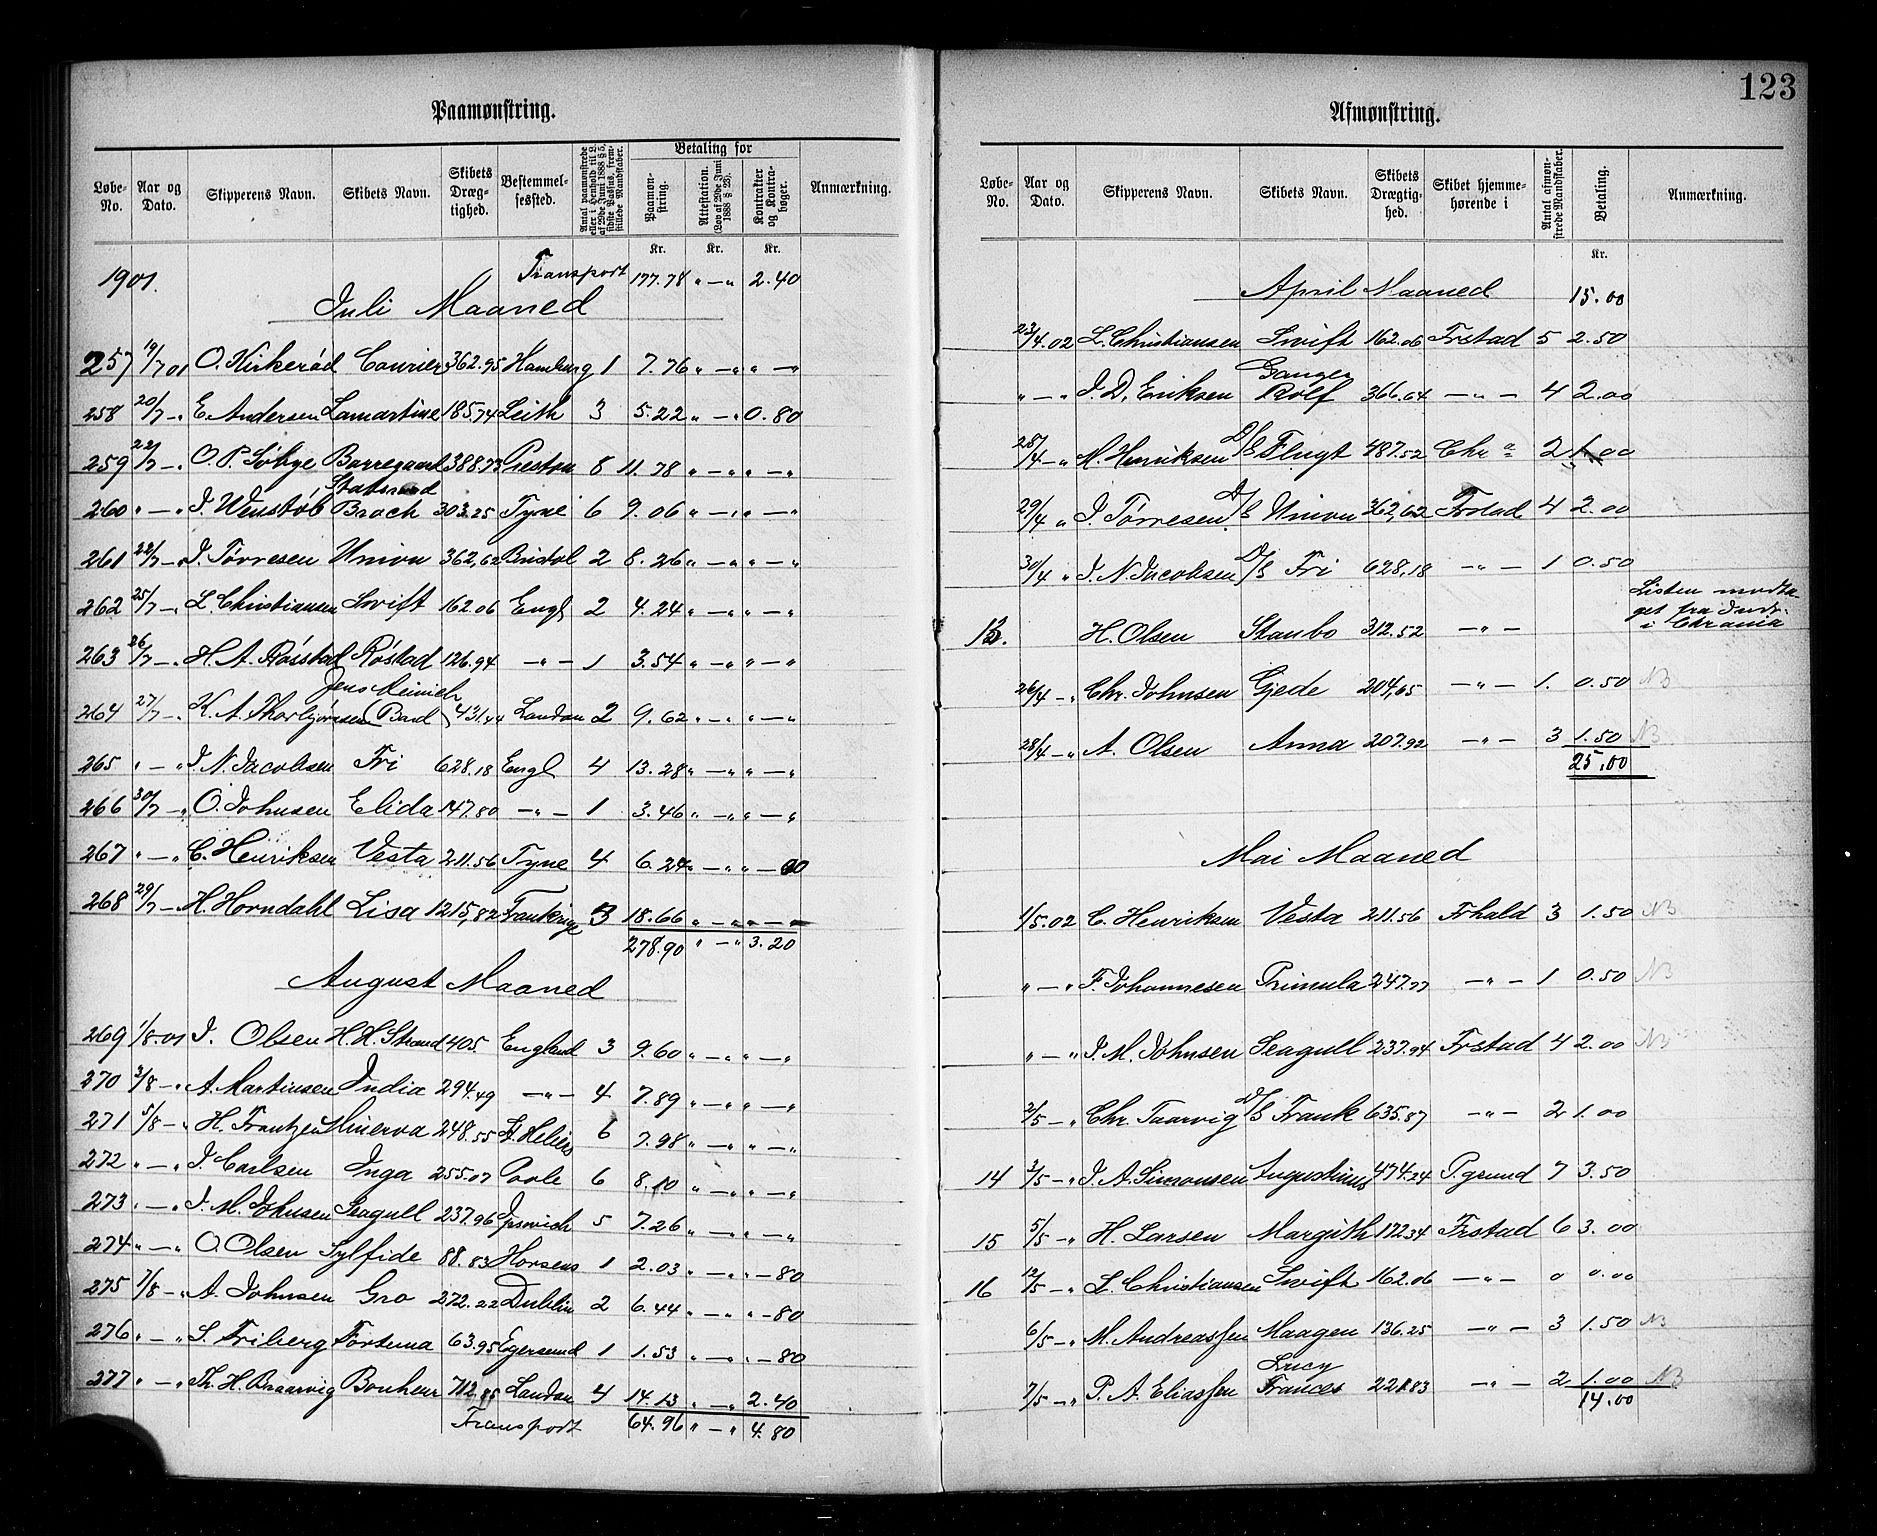 Paamønstring.
Løbe-No. Aar og Dato. Skipperens Navn. Skibets Navn. Skibets Dræg-tighed. Bestemmel-sessted. Antal paamønstrede eller i Henhold til L. af 29de Juni 1888 § 5, sidste Passus, frem-stillede Mandskaber. Betaling for Paamøn-string. Attestation. (Lov af 29de Juni 1888 § 23). Kontrakter og Kontra-bøger. Anmærkning.
Kr. Kr. Kr.
1901. Transport 177.78 " — " 2.40
Juli Maaned
257 19/7 01 O. Kirkerød Courier 362.95 Hamburg 1 7.76 " — " " — "
258 20/7 — " E. Andersen Lamartine 185.74 Leith 3 5.22 " — " 0.80
259 22/7 — " O. P. Søbye Borregaard 388.73 Preston 8 11.78 " — " " — "
260 " — " J. Wenstøb Statsraad Broch 303.25 Tyne 6 9.06 " — " " — "
261 22/7 — " J. Tørresen Union 362,62 Bristol 2 8.26 " — " " — "
262 25/7 — " L. Christiansen Swift 162.06 Engl 2 4.24 " — " " — "
263 26/7 — " H. A. Røsstad Røstad 126.94 — " — 1 3.54 " — " " — "
264 27/7 — " K. A. Thorbjørnsen Jens Meinich (Bad) 431.44 London 2 9.62 " — " " — "
265 " — " J. N. Jacobsen Fri 628.18 Engl 4 13.28 " — " " — "
266 30/7 — " O. Johnsen Elida 147.80 — " — 1 3.46 " — " " — "
267 " — " C. Henriksen Vesta 211.56 Tyne 4 6.24 " — " " — 00
268 29/7 — " H. Horndahl Lisa 1215,82 Frankrige 3 18.66 " — " " — "
278.90 " — " 3.20
August Maaned
269 1/8.01 J. Olsen H. H. Strand 405. England 3 9.60 " — " " — "
270 3/8 — " A. Martinsen India 294.49 — " — 4 7.89 " — " " — "
271 5/8 — " H. Frantzen Minerva 248.55 St Heliers 6 7.98 " — " " — "
272 " — " J. Carlsen Inga 255.07 Poole 6 8.10 " — " " — "
273 " — " J. M. Johnsen Seagull 237.96 Ipswich 5 7.26 " — " " — "
274 " — " O. Olsen Sylfide 88.83 Horsens 1 2.03 " — " " — 80
275 7/8 — " A. Johnsen Gro 272.22 Dublin 2 6.44 " — " " — 80
276 " — " S. Friberg Fortuna 63.95 Egersund 1 1.53 " — " " — 80
277 " — " Th. H. Braarvig Bonheur 712.85 London 4 14.13 " — " 2.40
Transport 64.96 " — " 4.80
123
Afmønstring.
Løbe-No. Aar og Dato. Skipperens Navn. Skibets Navn. Skibets Drægtig-hed. Skibet hjemme-hørende i Antal afmøn-strede Mandskaber. Betaling. Anmærkning.
Kr.
April Maaned 15.00
23/4.02 L. Christiansen Swift 162.06 Frstad 5 2.50
" — " J. D. Eriksen Ganger Rolf 366.64 — " — 4 2.00
28/4 — " M. Henriksen D/S Flugt 487.52 Chra 2 1.00
29/4 " J. Tørresen D/S Union 362,62 Frstad 4 2.00
30/4 " J. N. Jacobsen D/S Fri 628,18 — " — 1 0.50
13. H. Olsen Stanbo 312.52 — " — Listen modta-get fra Indr. i Chrania
26/4 — " Chr. Johnsen Gjede 204,65 — " — 1. 0.50 NB
28/4 — " A. Olsen Anna 207.92 — " — 3 1.50 NB
25.00
Mai Maaned
1/5.02 C. Henriksen Vesta 211.56 Frhald 3 1.50 NB
" — " F. Johannesen Primula 247.77 — " — 1 0.50 NB
" — " J. M. Johnsen Seagull 237.94 Frstad 4 2.00 NB
2/5 — " Chr. Taarvig D/S Frank 635.87 — " — 2 1.00
14 3/5 — " J. A. Simonsen Augustinus 474.24 P.grund 7 3.50
15 5/5 — " H. Larsen Margith 172.34 Frstad 6 3.00
16 12/5 — " L. Christiansen Swift 162.06 — " — 0 0.00
6/5 — " M. Andreassen Maagen 136.25 — " — 3 1.50 NB
7/5 — " P. A. Eliassen Lucy Frances 221.83 — " — 2 1.00 NB
14.00